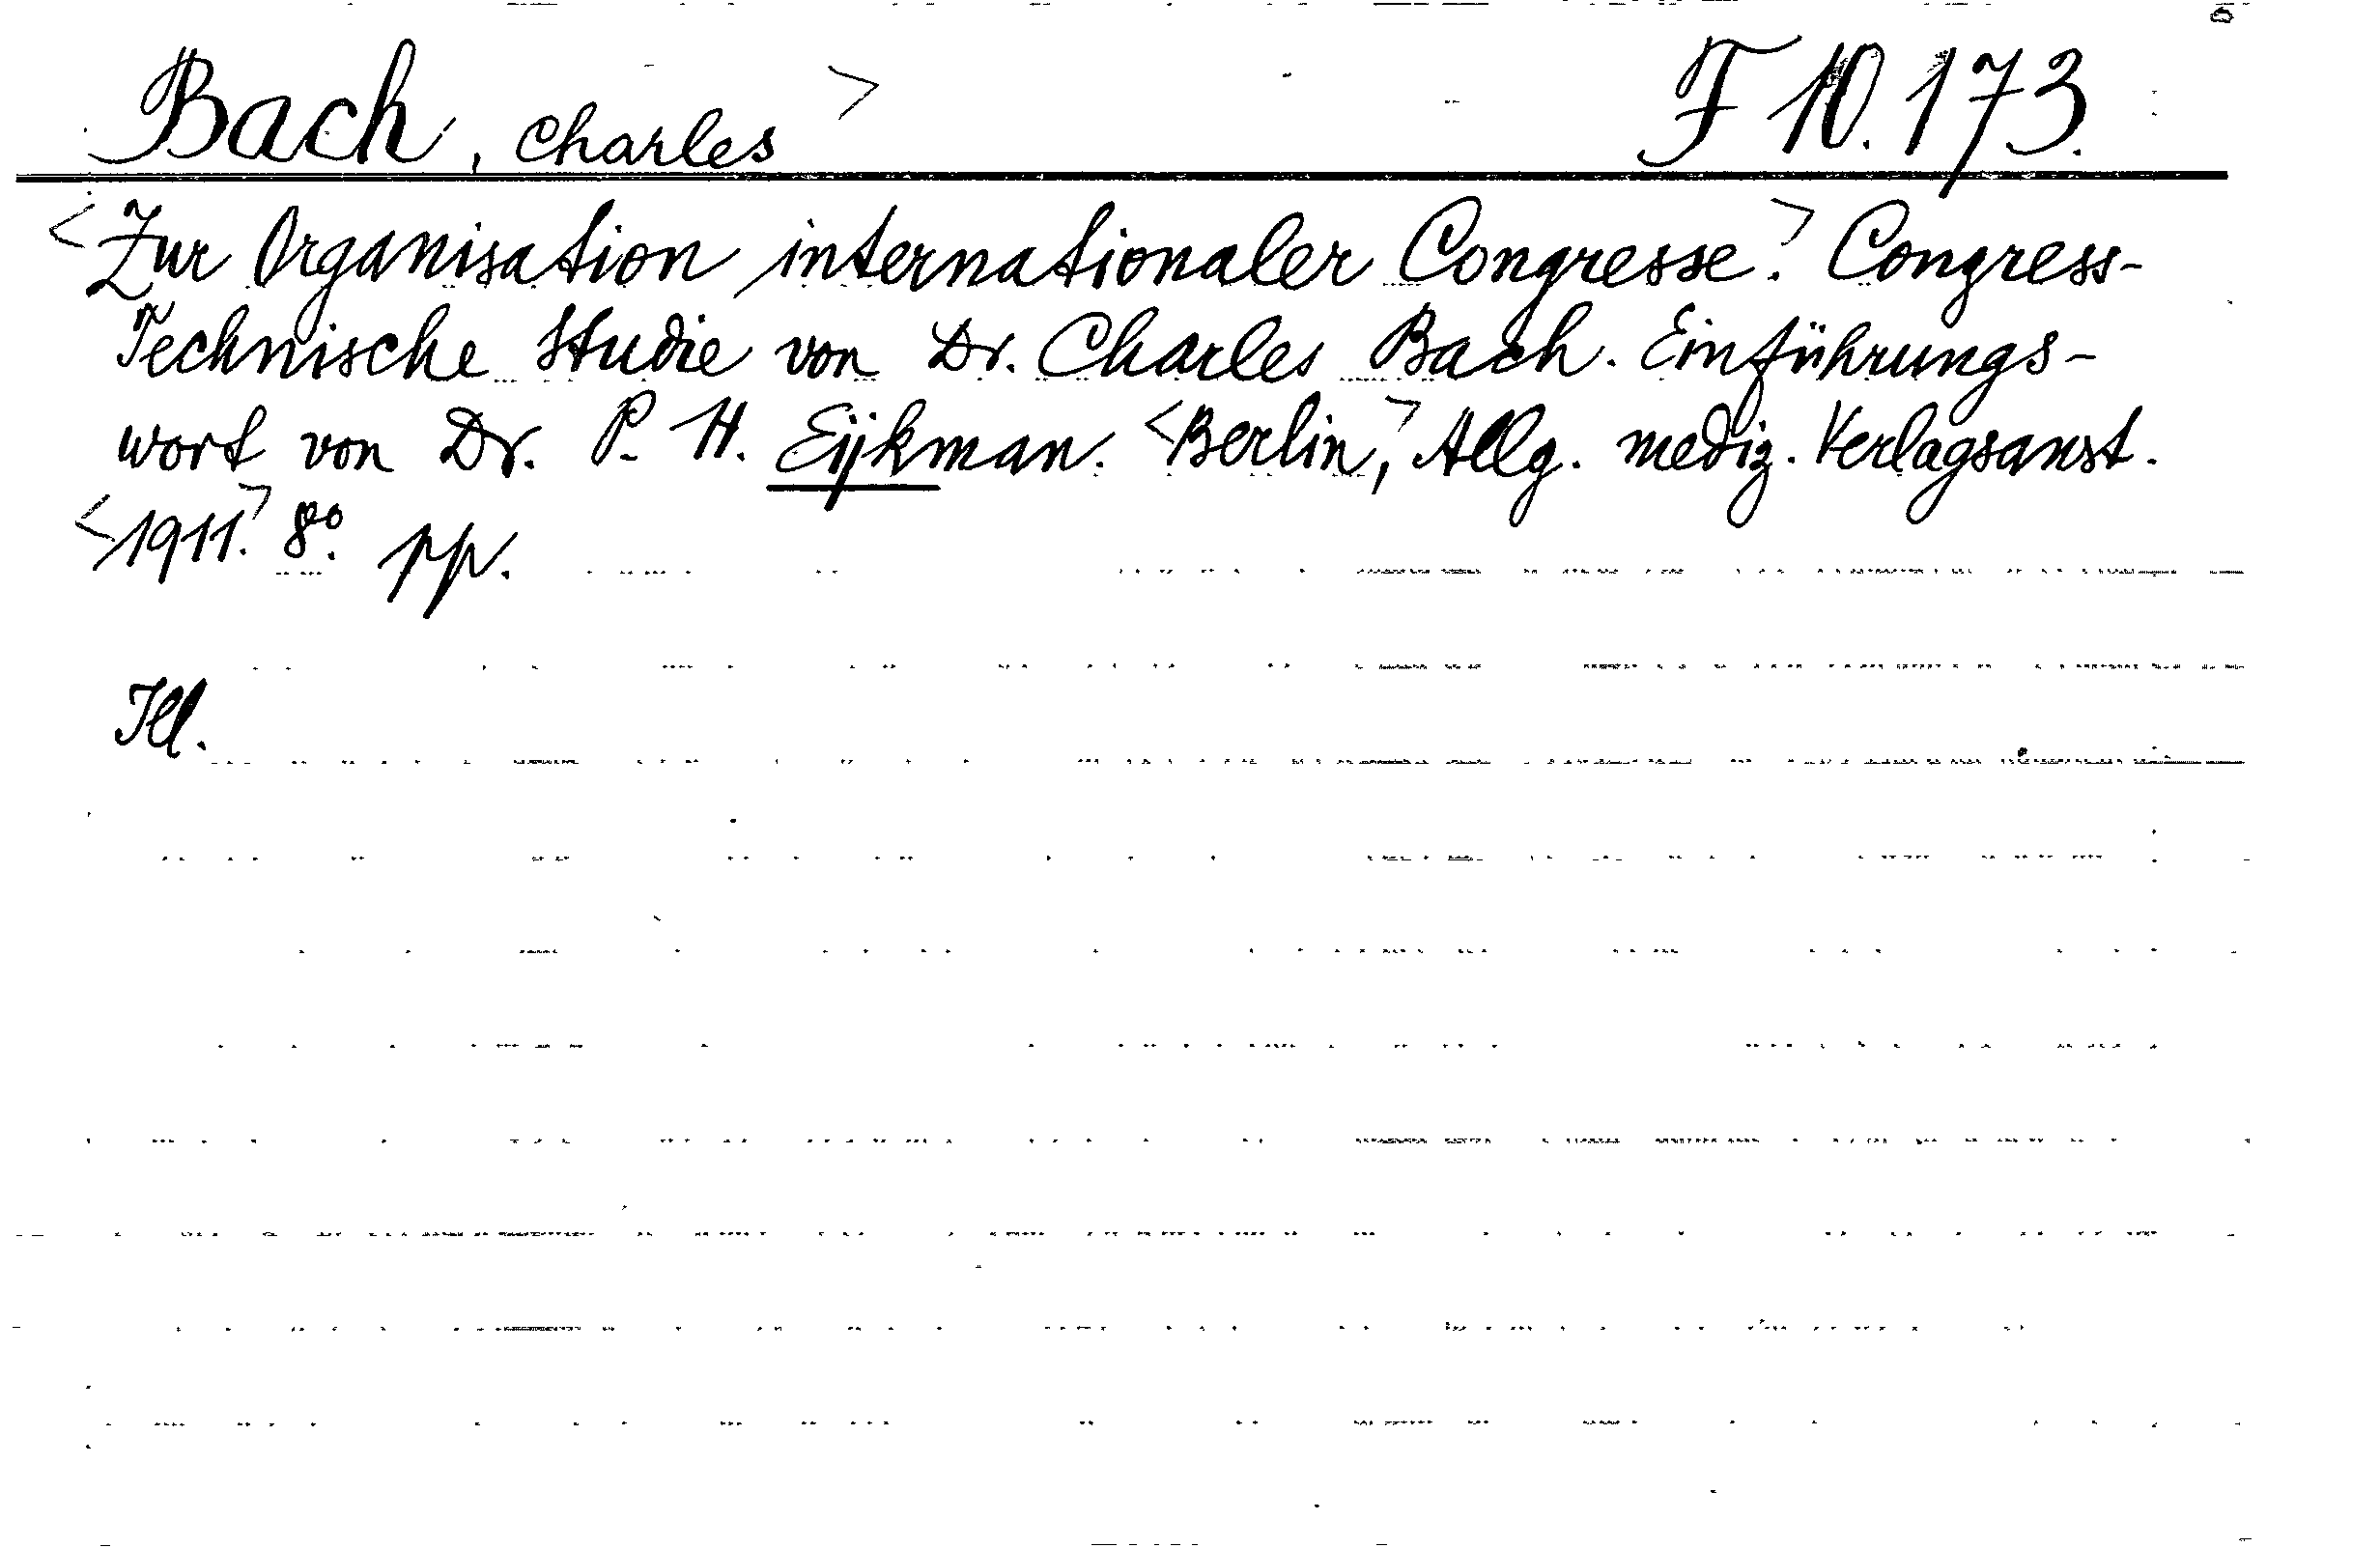 Bach, Charles> F 10.173.
<Zur Organisation internationaler Congresse.> Congress-
Technische Studie von Dr. Charles Bach. Einführungs-
wort von Dr. P. H. Eijkman. <Berlin,> Allg. mediz. Verlagsanst.
<1911.> 8º. pp.
Ill.